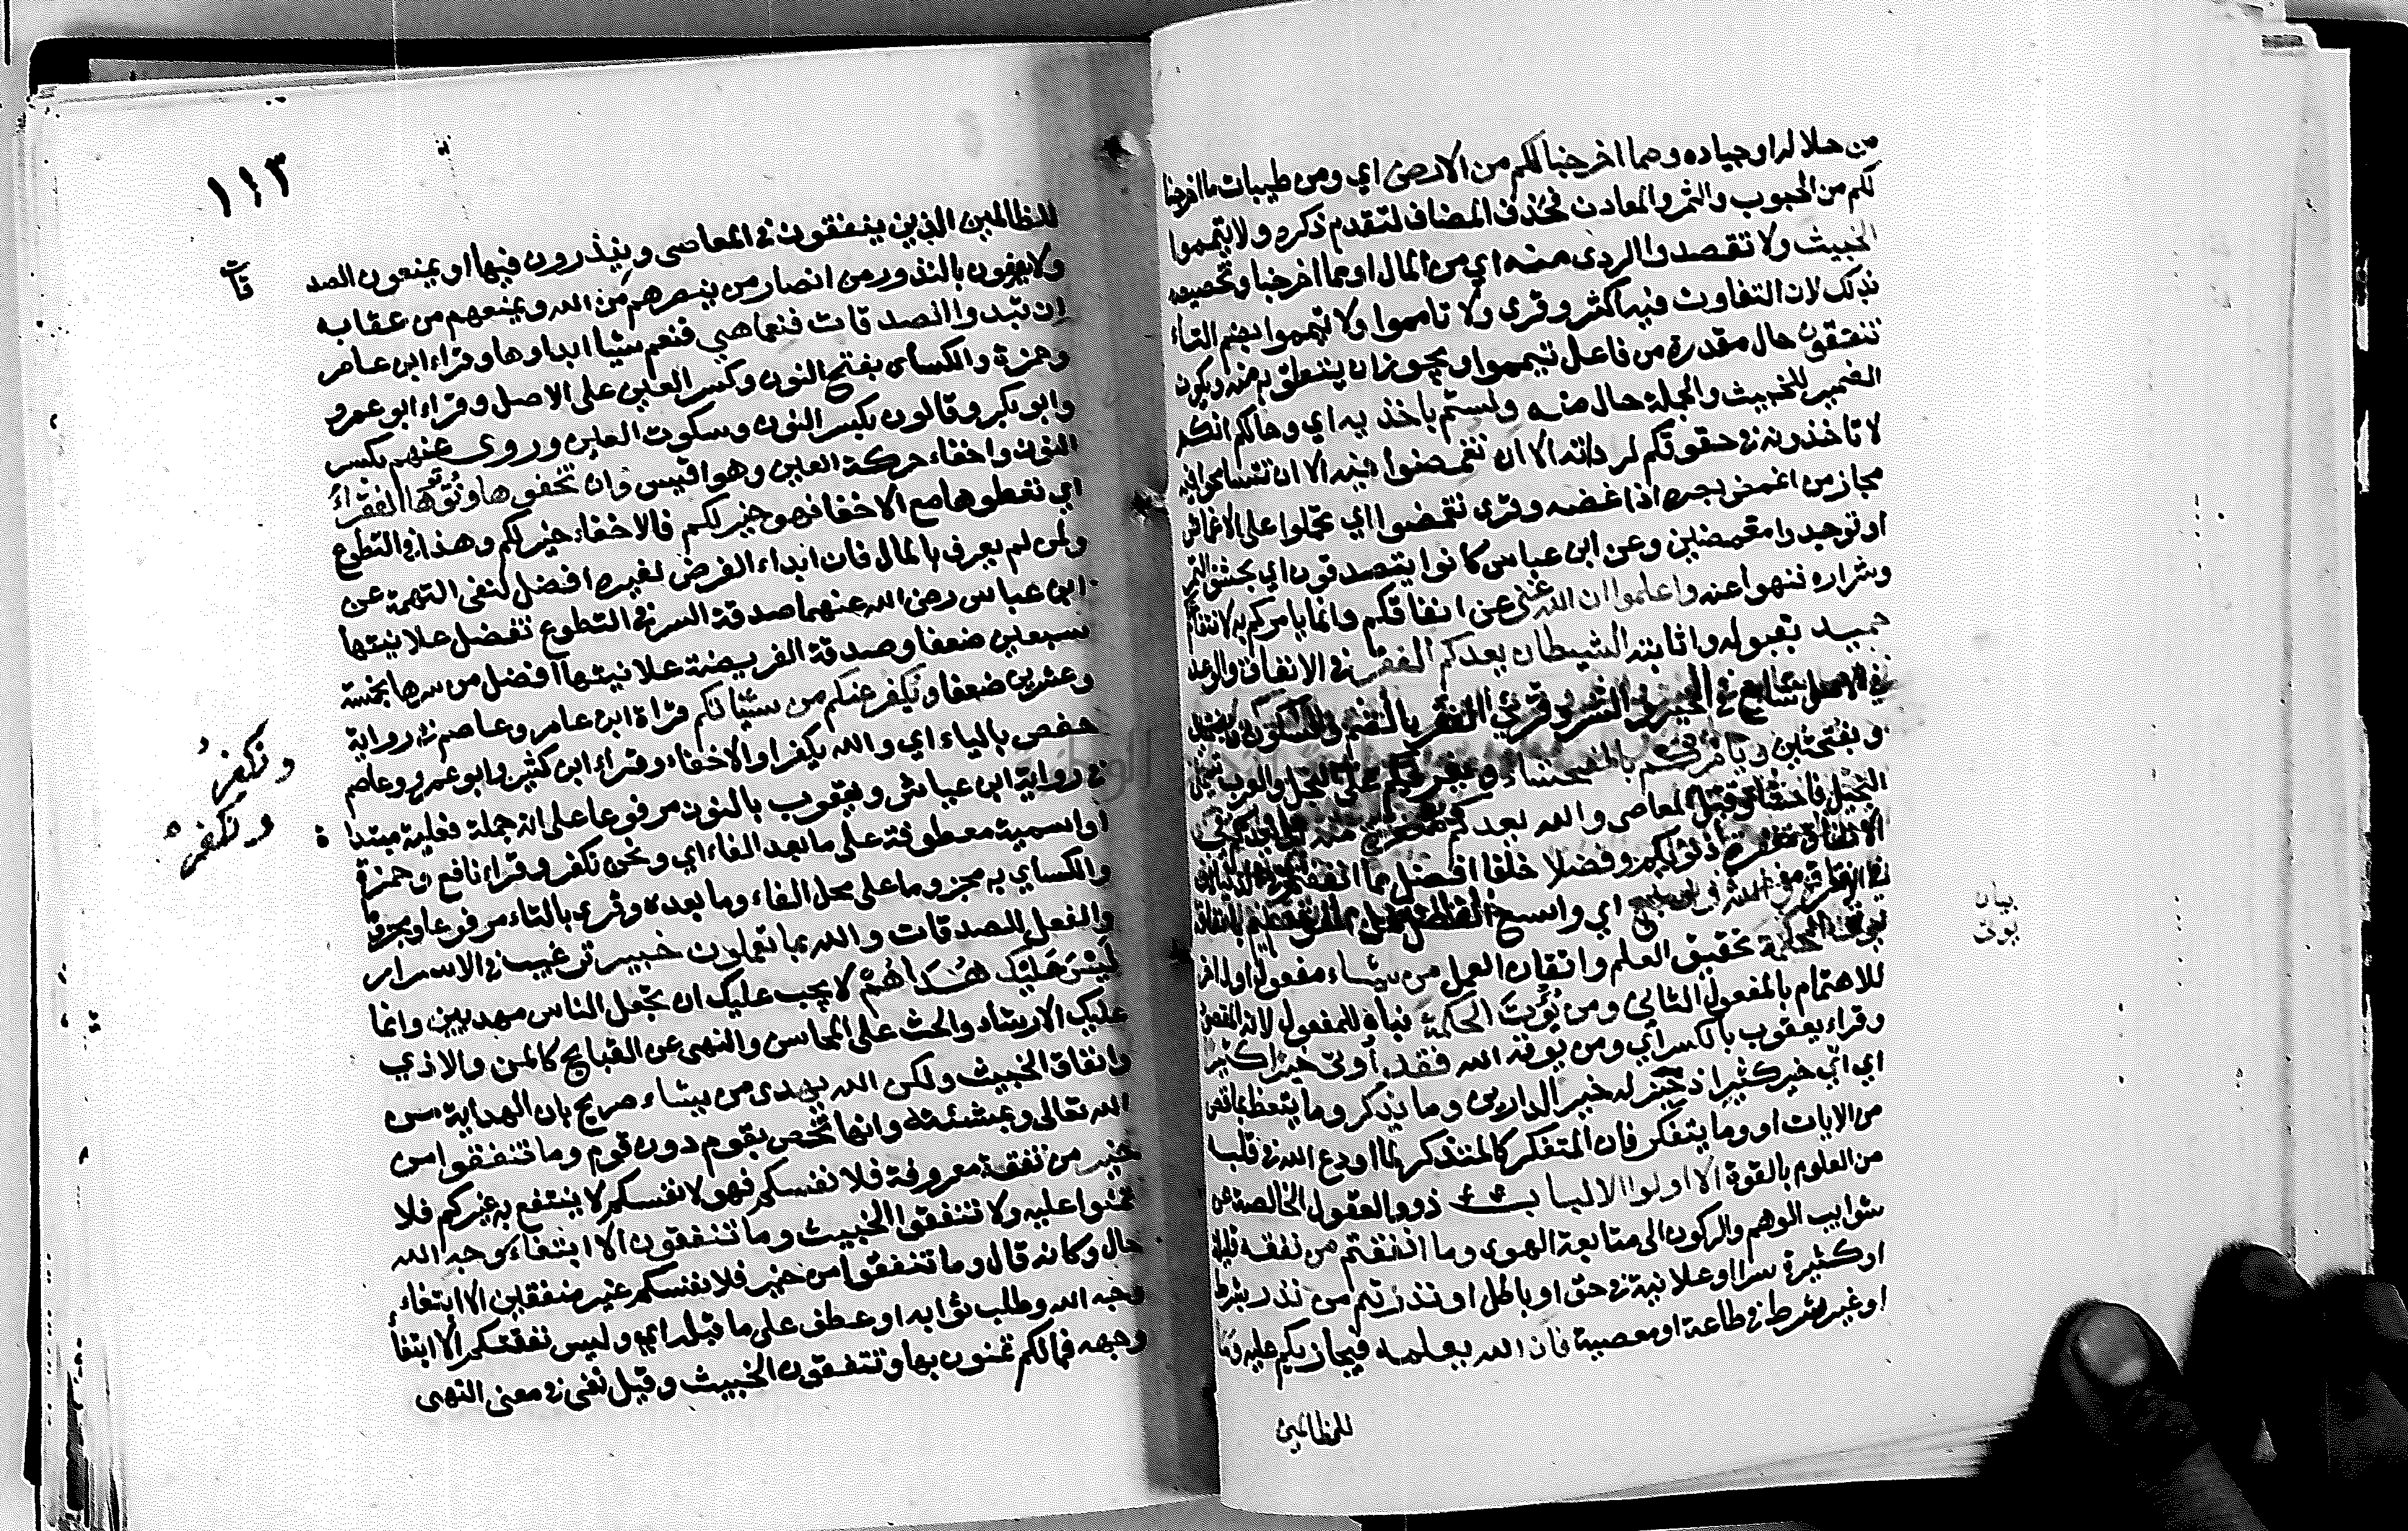 من حلاله او جياده ومما اخرجنا لكم من الارض اي ومن طيبات ما اخرجنا
لكم من الحبوب والثمر والمعادن فحذف المضاف لتقدم ذكره ولا تيمموا
الخبيث ولا تقصدوا الردى منه اي من المال او مما اخرجنا وتخصيصه
بذلك لان التفاوت فيه اكثر وقرى ولا تامموا ولا تيمموا بضم التاء
تنفقون حال مقدرة من فاعل تيمموا ويجوز ان يتعلق به منه ويكون
الضمير للخبيث والجملة حال منه ولستم باخذيه اي وحالكم انكم
لا تاخذونه في حقوقكم لرداته الا ان تغمضوا فيه الا ان تتسامحوا فيه
مجاز من اغمض بصره اذا غضه وقرى تغمضوا اي تحملوا على الاغماض
او توجدوا مغمضين وعن ابن عباس كانوا يتصدقون اي بحشف التمر
وشراره فنهوا عنه واعلموا ان الله غني عن انفاقكم وانما يامركم به لانتفاعكم
حميد بقبوله واثابته الشيطان يعدكم الفقر في الانفاق والوعد
في الاصل شايع في الخير والشر وقرى الفقر بالضم والسكون
وبفتحتين ويامركم بالفحشاء ويغريكم على البخل والعرب تسمى
البخيل فاحشا وقيل المعاصي والله يعدكم مغفرة منه
الانفاق مغفرة ذنوبكم وفضلا خلفا افضل مما انفقتم
والله واسع اي واسع الفضل لمن انفق عليم بانفاقه
يوتى الحكمة تحقيق العلم واتقان العمل من يشاء مفعول اول اخر
للاهتمام بالمفعول الثاني ومن يؤت الحكمة بناؤه للمفعول لانه المقصود
وقراء يعقوب بالكسر اي ومن يوته الله فقد اوتى خيرا كثيرا
اي اي خير كثير اذ حيز له خير الدارين وما يذكر وما يتعظ بما قص
من الايات او وما يتفكر فان المتفكر كالمتذكر لما اودع الله في قلبه
من العلوم بالقوة الا اولوا الالباب ذووا العقول الخالصة عن
شوايب الوهم والركون الى متابعة الهوى وما انفقتم من نفقة قليلة
او كثيرة سرا او علانية في حق او باطل او نذرتم من نذر بشرط
او غير شرط في طاعة او معصية فان الله يعلمه فيجازيكم عليه وما
للظالمين
بيان
يوتى
١١٣
للظالمين الذين ينفقون في المعاصى وينذرون فيها او يمنعون الصد
قات
ولا يوفون بالنذور من انصار من ينصرهم من الله ويمنعهم من عقابه
ان تبدوا الصدقات فنعما هي فنعم شيا ابداوها وقراء ابن عامر
وحمزة والكساى بفتح النون وكسر العين على الاصل وقراء ابو عمرو
وابو بكر وقالون بكسر النون وسكون العين وروى عنهم بكسر
النون واخفاء حركة العين وهو اقيس وان تخفوها وتؤتوها الفقراء
اي تعطوها مع الاخفا فهو خير لكم فالاخفاء خير لكم وهذا في التطوع
ولمن لم يعرف بالمال فان ابداء الفرض لغيره افضل لنفى التهمة عن
ابن عباس رضى الله عنهما صدقة السر في التطوع تفضل علانيتها
سبعين ضعفا وصدقة الفريضة علانيتها افضل من سرها بخمسة
وعشرين ضعفا ونكفر عنكم من سيئاتكم قراة ابن عامر وعاصم في رواية
حفص بالياء اي والله يكفر او الاخفاء وقراء ابن كثير وابو عمرو وعاصم
في رواية ابن عياش ويعقوب بالنون مرفوعا على انه جملة فعلية مبتدا ة
او اسمية معطوفة على ما بعد الفاء اي ونحن نكفر وقراء نافع وحمزة
والكساي به مجزوما على محل الفاء وما بعده وقرى بالتاء مرفوعا ومجزوما
والفعل للصدقات والله بما تعملون خبير ترغيب في الاسرار
ليس عليك هداهم لا يجب عليك ان تجعل الناس مهديين وانما
عليك الارشاد والحث على المحاسن والنهى عن القبايح كالمن والاذي
وانفاق الخبيث ولكن الله يهدى من يشاء صريح بان الهداية من
الله تعالى وبمشئته وانها تخص بقوم دون قوم وما تنفقوا من
خير من نفقة معروفة فلانفسكم فهو لانفسكم لا ينتفع به غيركم فلا
تمنوا عليه ولا تنفقوا الخبيث وما تنفقون الا ابتغاء وجه الله
حال وكانه قال وما تنفقوا من خير فلانفسكم غير منفقين الا ابتغاء
وجه الله وطلب ثوابه او عطف على ما قبله اي وليس نفقتكم الا ابتغا
وجهه فما لكم تمنون بها وتنفقون الخبيث وقيل نفى في معنى النهى
ونكفر
ونكفر